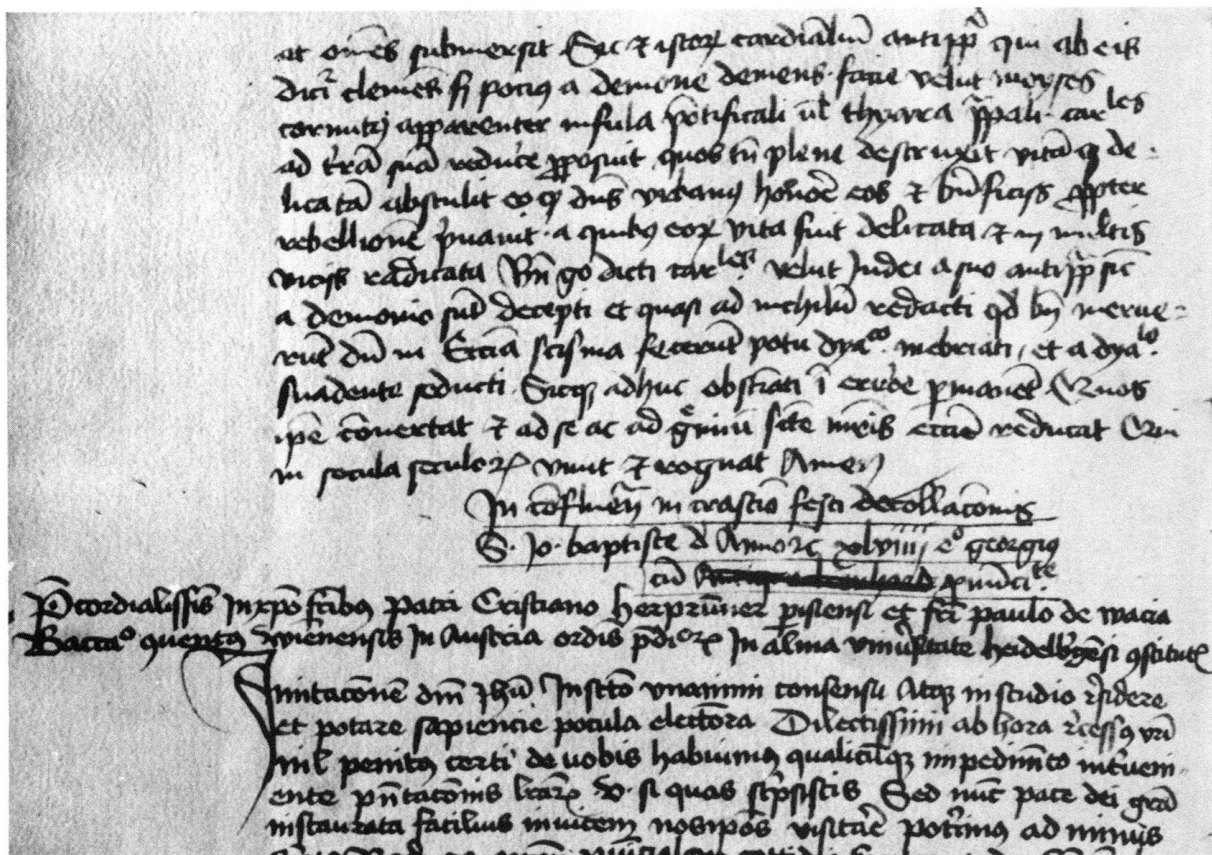 at oms̄ submersit Sic ⁊ istoꝝ cardīaliū antipp̄ qui ab eis
dicr̄ clemēs sꝫ potiꝰ a demone demens facie velut moyses
cornutꝫ apparenter infula pōtificali ul̄ thyara p̄pali car^les
ad t̄rā suā reduc̄e ꝓposuit quos tn̄ plene destruxit vitāqꝫ de-
licatā abstulit eo ꝙ dn̄s vrbanꝰ honōe eos ⁊ bn̄ficijs ꝓpter
rebellionē p̄uauit a quibꝰ eoꝝ vita fuit delicata ⁊ in multis
vicijs radicata Bn̄ g̊ dicti car^les velut Judei a suo antipp̄ sic
a demonio sūt decepti et quasi ad nichilū redacti qd̄ bn̄ merue-
rūt dū in Ecc̄ia scisma fecerūt potu dya^co inebriati, et a dya^lo
suadente seducti Sicqꝫ adhuc obstīati ī err̄oe ꝑmanēt Quos
ip̄e cōuertat ⁊ ad se ac ad gͤmiū sc̄te mr̄is ecc̄ie reducat Qui
in secula seculoꝝ viuit ⁊ regnat Amen
In cōfluen̄ in crastīo festi decollacōnis
S. Jo. baptiste georgiꝰ
cū
cordialissīs In xp̄o fr̄ibꝰ Patri Cristiano herprūner pisiensi et fr̄i paulo de wacia
Bacca^o wiēnensis In Austria ordīs p̄di^coꝝ In alma vniūsitate heidelb̄gēsi ꝯstitutꝭ
vnitacōnē dn̄i Jhū In sc̄tō vnanimi consensu Atqꝫ in studio r̄sidere
et potare sapiencie pocula electōra Dilectissimi ab hora r̄cessꝰ vr̄i
nil penitꝰ certi de vobis habuimꝰ qualicūqꝫ impedimēto int̄ueni-
ente pn̄tacōnis lr̄aꝝ si quas sc̄psistis Sed nūc pace dei gr̄a
instaurata facilius inuicem nosip̄os visitāe pot̄imus ad minus